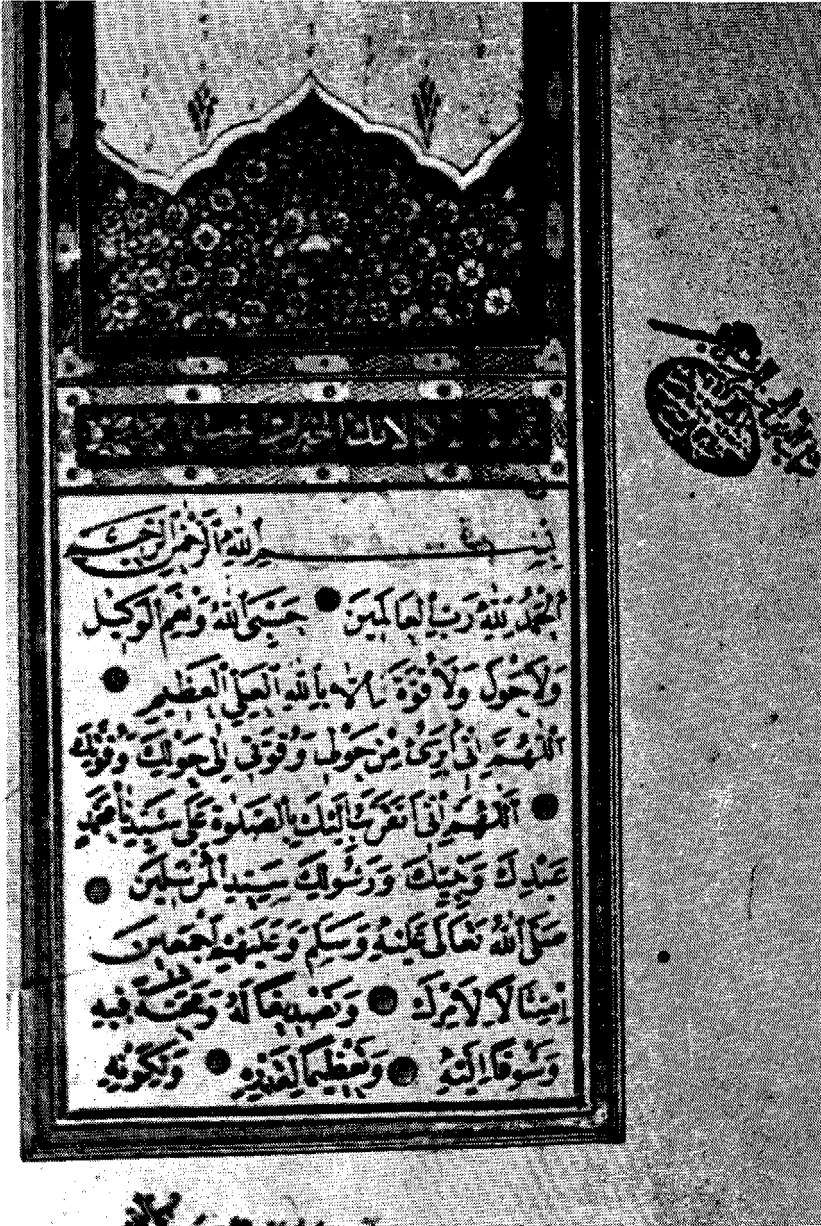 بِسْمِ اللهِ الرَّحْمٰنِ الرَّحِيمِ
اَلْحَمْدُ لِلّٰهِ رَبِّ الْعَالَمِينَ حَسْبِىَ اللهُ وَنِعْمَ الْوَكِيلُ
وَلَاحَوْلَ وَلَاقُوَّةَ اِلَّا بِاللهِ الْعَلِىِّ الْعَظِيمِ
اَللّٰهُمَّ اِنِّى اَبْرَئُ مِنْ حَوْلِى وَقُوَّتِى اِلٰى حَوْلِكَ وَقُوَّتِكَ
اَللّٰهُمَّ اِنِّى اَتَقَرَّبُ اِلَيْكَ بِالصَّلٰوةِ عَلٰى سَيِّدِنَا مُحَمَّدٍ
عَبْدِكَ وَنَبِيِّكَ وَرَسُولِكَ سَيِّدِ الْمُرْسَلِينَ
صَلَّى اللهُ تَعَالٰى عَلَيْهِ وَسَلَّمَ وَعَلَيْهِمْ اَجْمَعِينَ
اِمْتِثَالًا لِاَمْرِكَ وَتَصْدِيقًا لَهُ وَمَحَبَّةً فِيهِ
وَشَوْقًا اِلَيْهِ وَتَعْظِيمًا لِقَدْرِهِ وَلِكَوْنِهِ